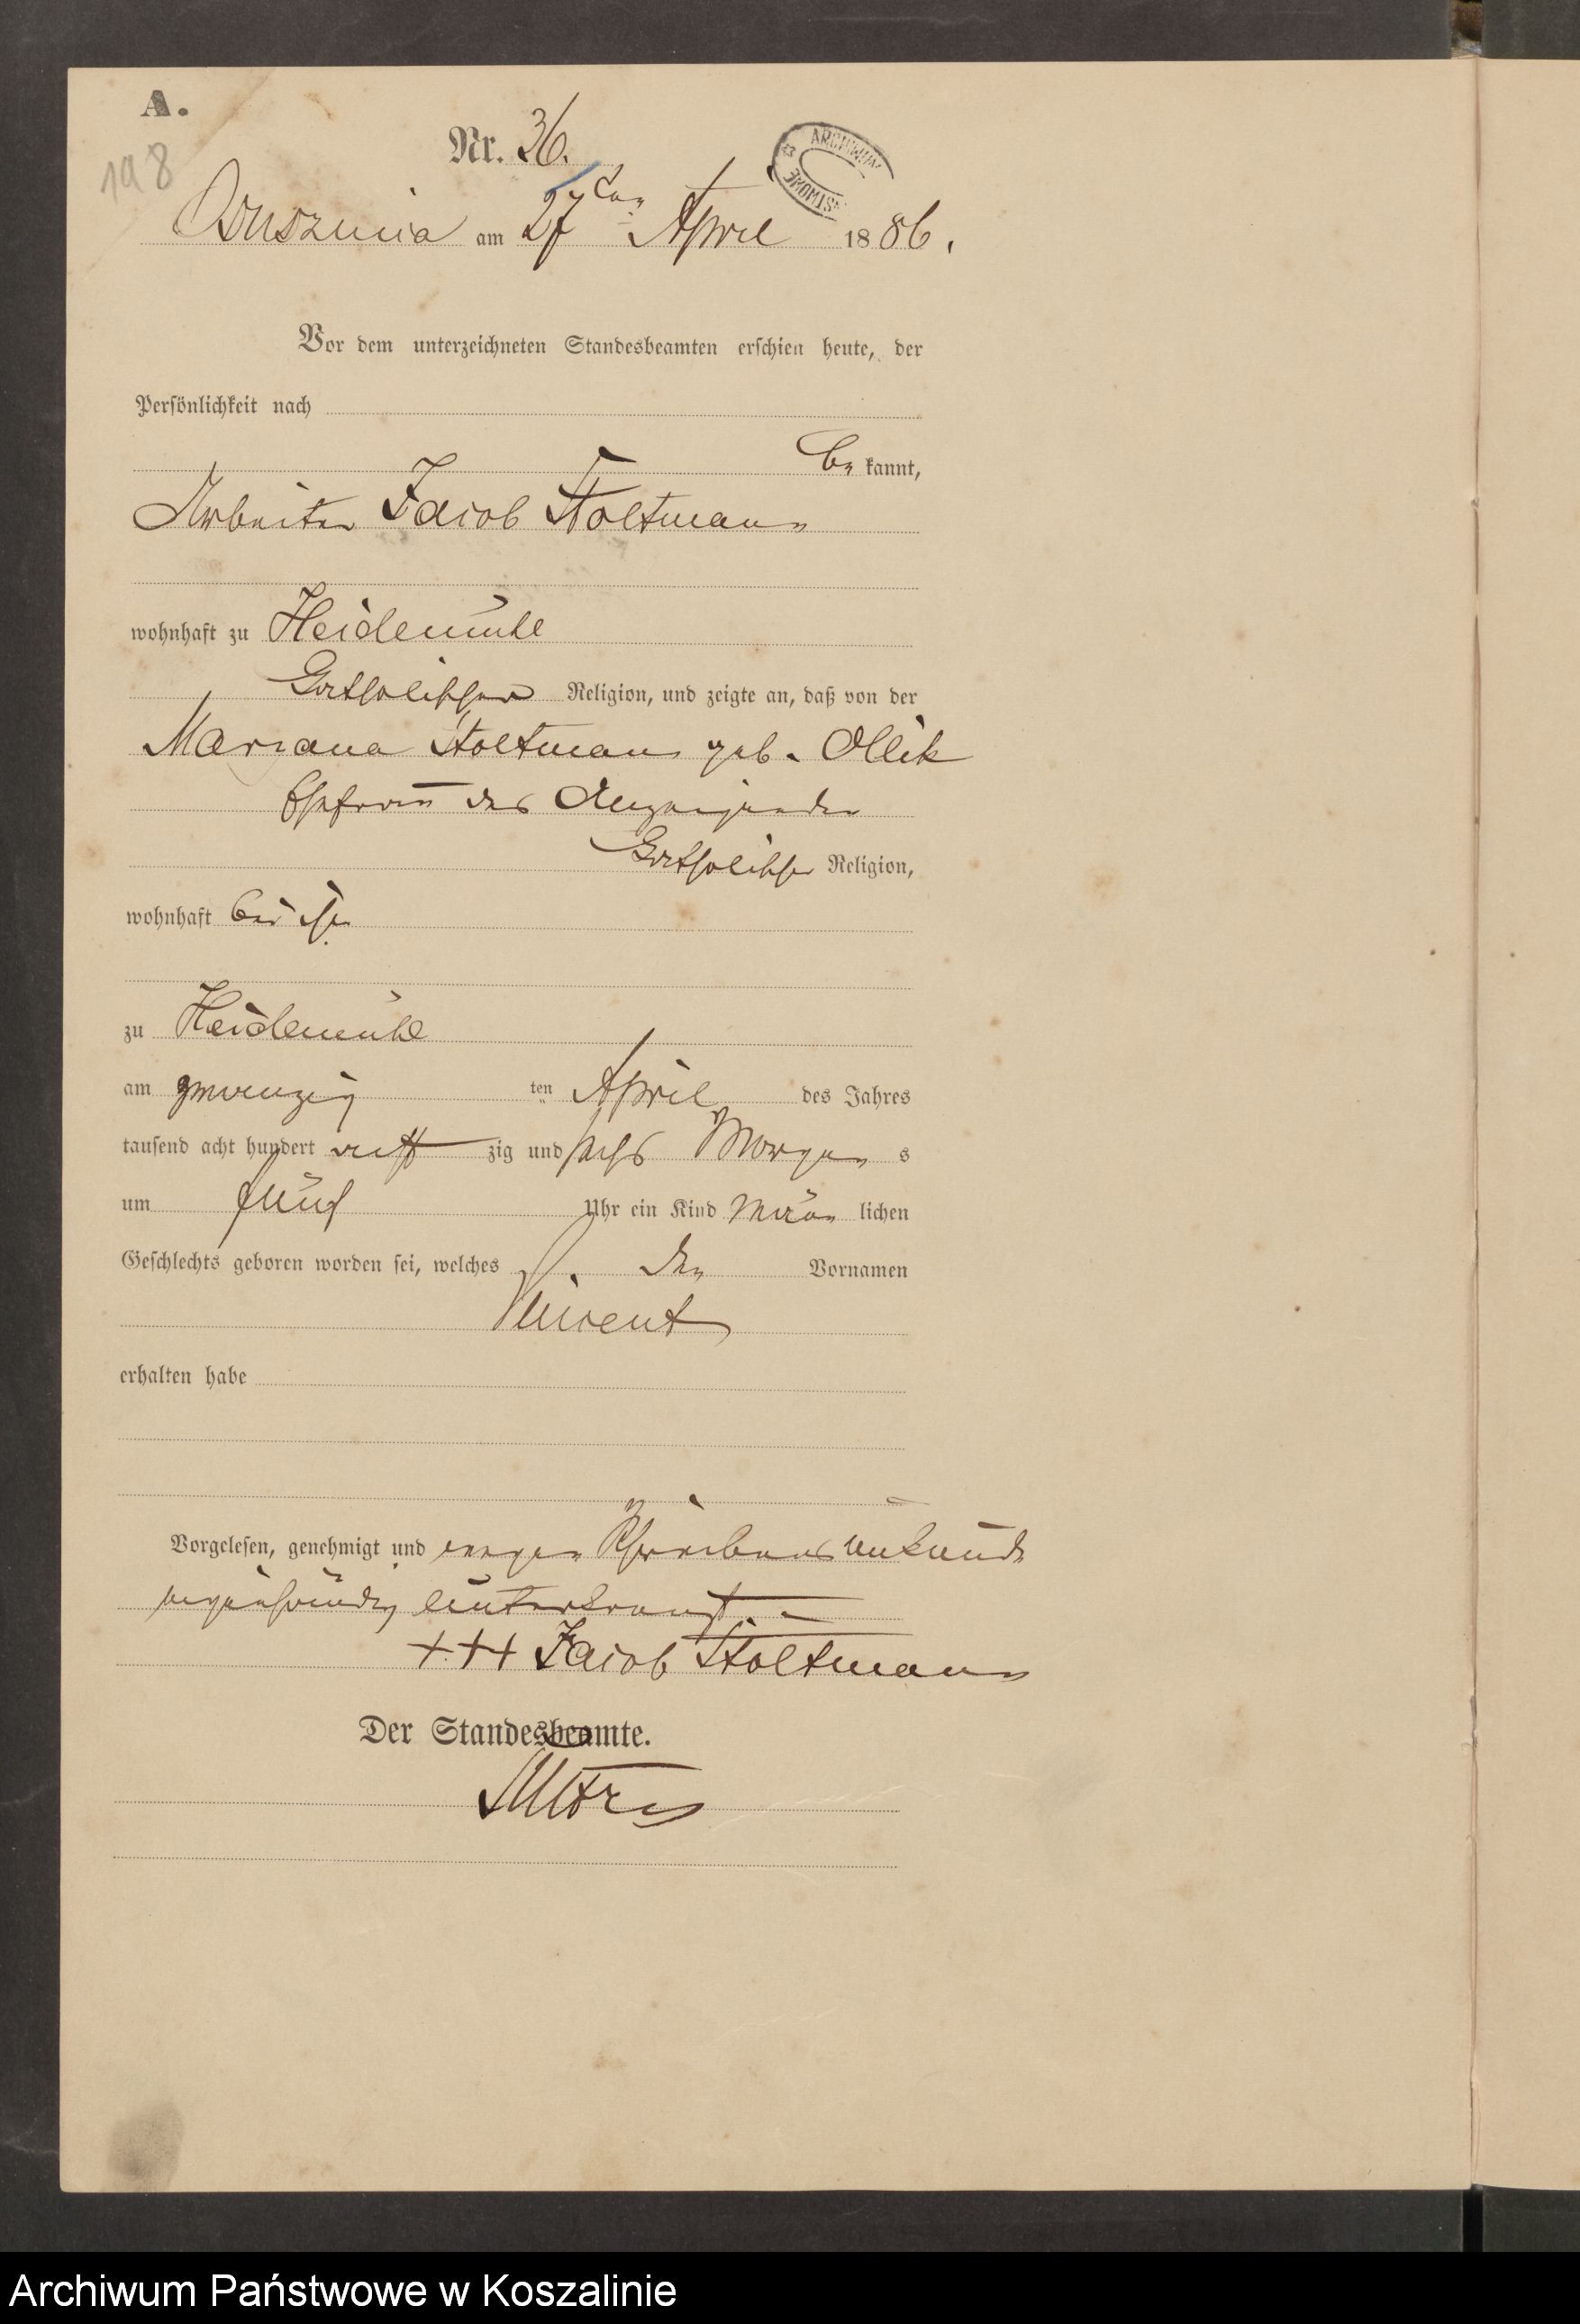 A.
198
Nr. 36.
ARCHIWUM
Borszkowo am 27ten April 1886.
Vor dem unterzeichneten Standesbeamten erschien heute, der
Persönlichkeit nach
be kannt,
Arbeiter Jacob Stoltmann
wohnhaft zu Heidemühl
katholischer Religion, und zeigte an, daß von der
Maryana Stoltmann geb. Ollik
Ehefrau des Anzeigenden
katholischer Religion,
wohnhaft bei ihm
zu Heidemühl
am zwanzig ten April des Jahres
tausend acht hundert acht zig und sechs Morgens
um fünf Uhr ein Kind männ lichen
Geschlechts geboren worden sei, welches den Vornamen
Vincent
erhalten habe
Vorgelesen, genehmigt und wegen Schreibensunkunde
eigenhändig unterkreuzt.
+++ Jacob Stoltmann
Der Standesbeamte.
Archiwum Państwowe w Koszalinie